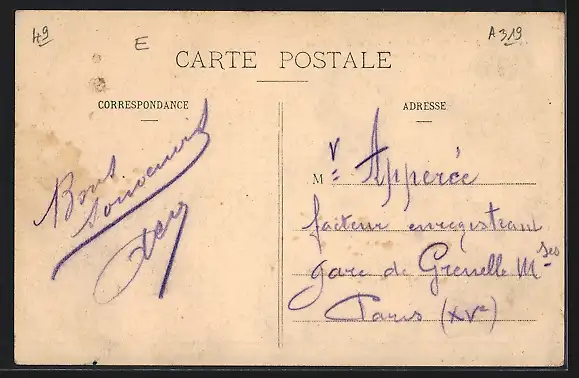 49
E
A 319
CARTE POSTALE
CORRESPONDANCE
Bons
souvenirs
ADRESSE
Mr Apperée
facteur enregistrant
gare de Grenelle Mses
Paris (XVe)